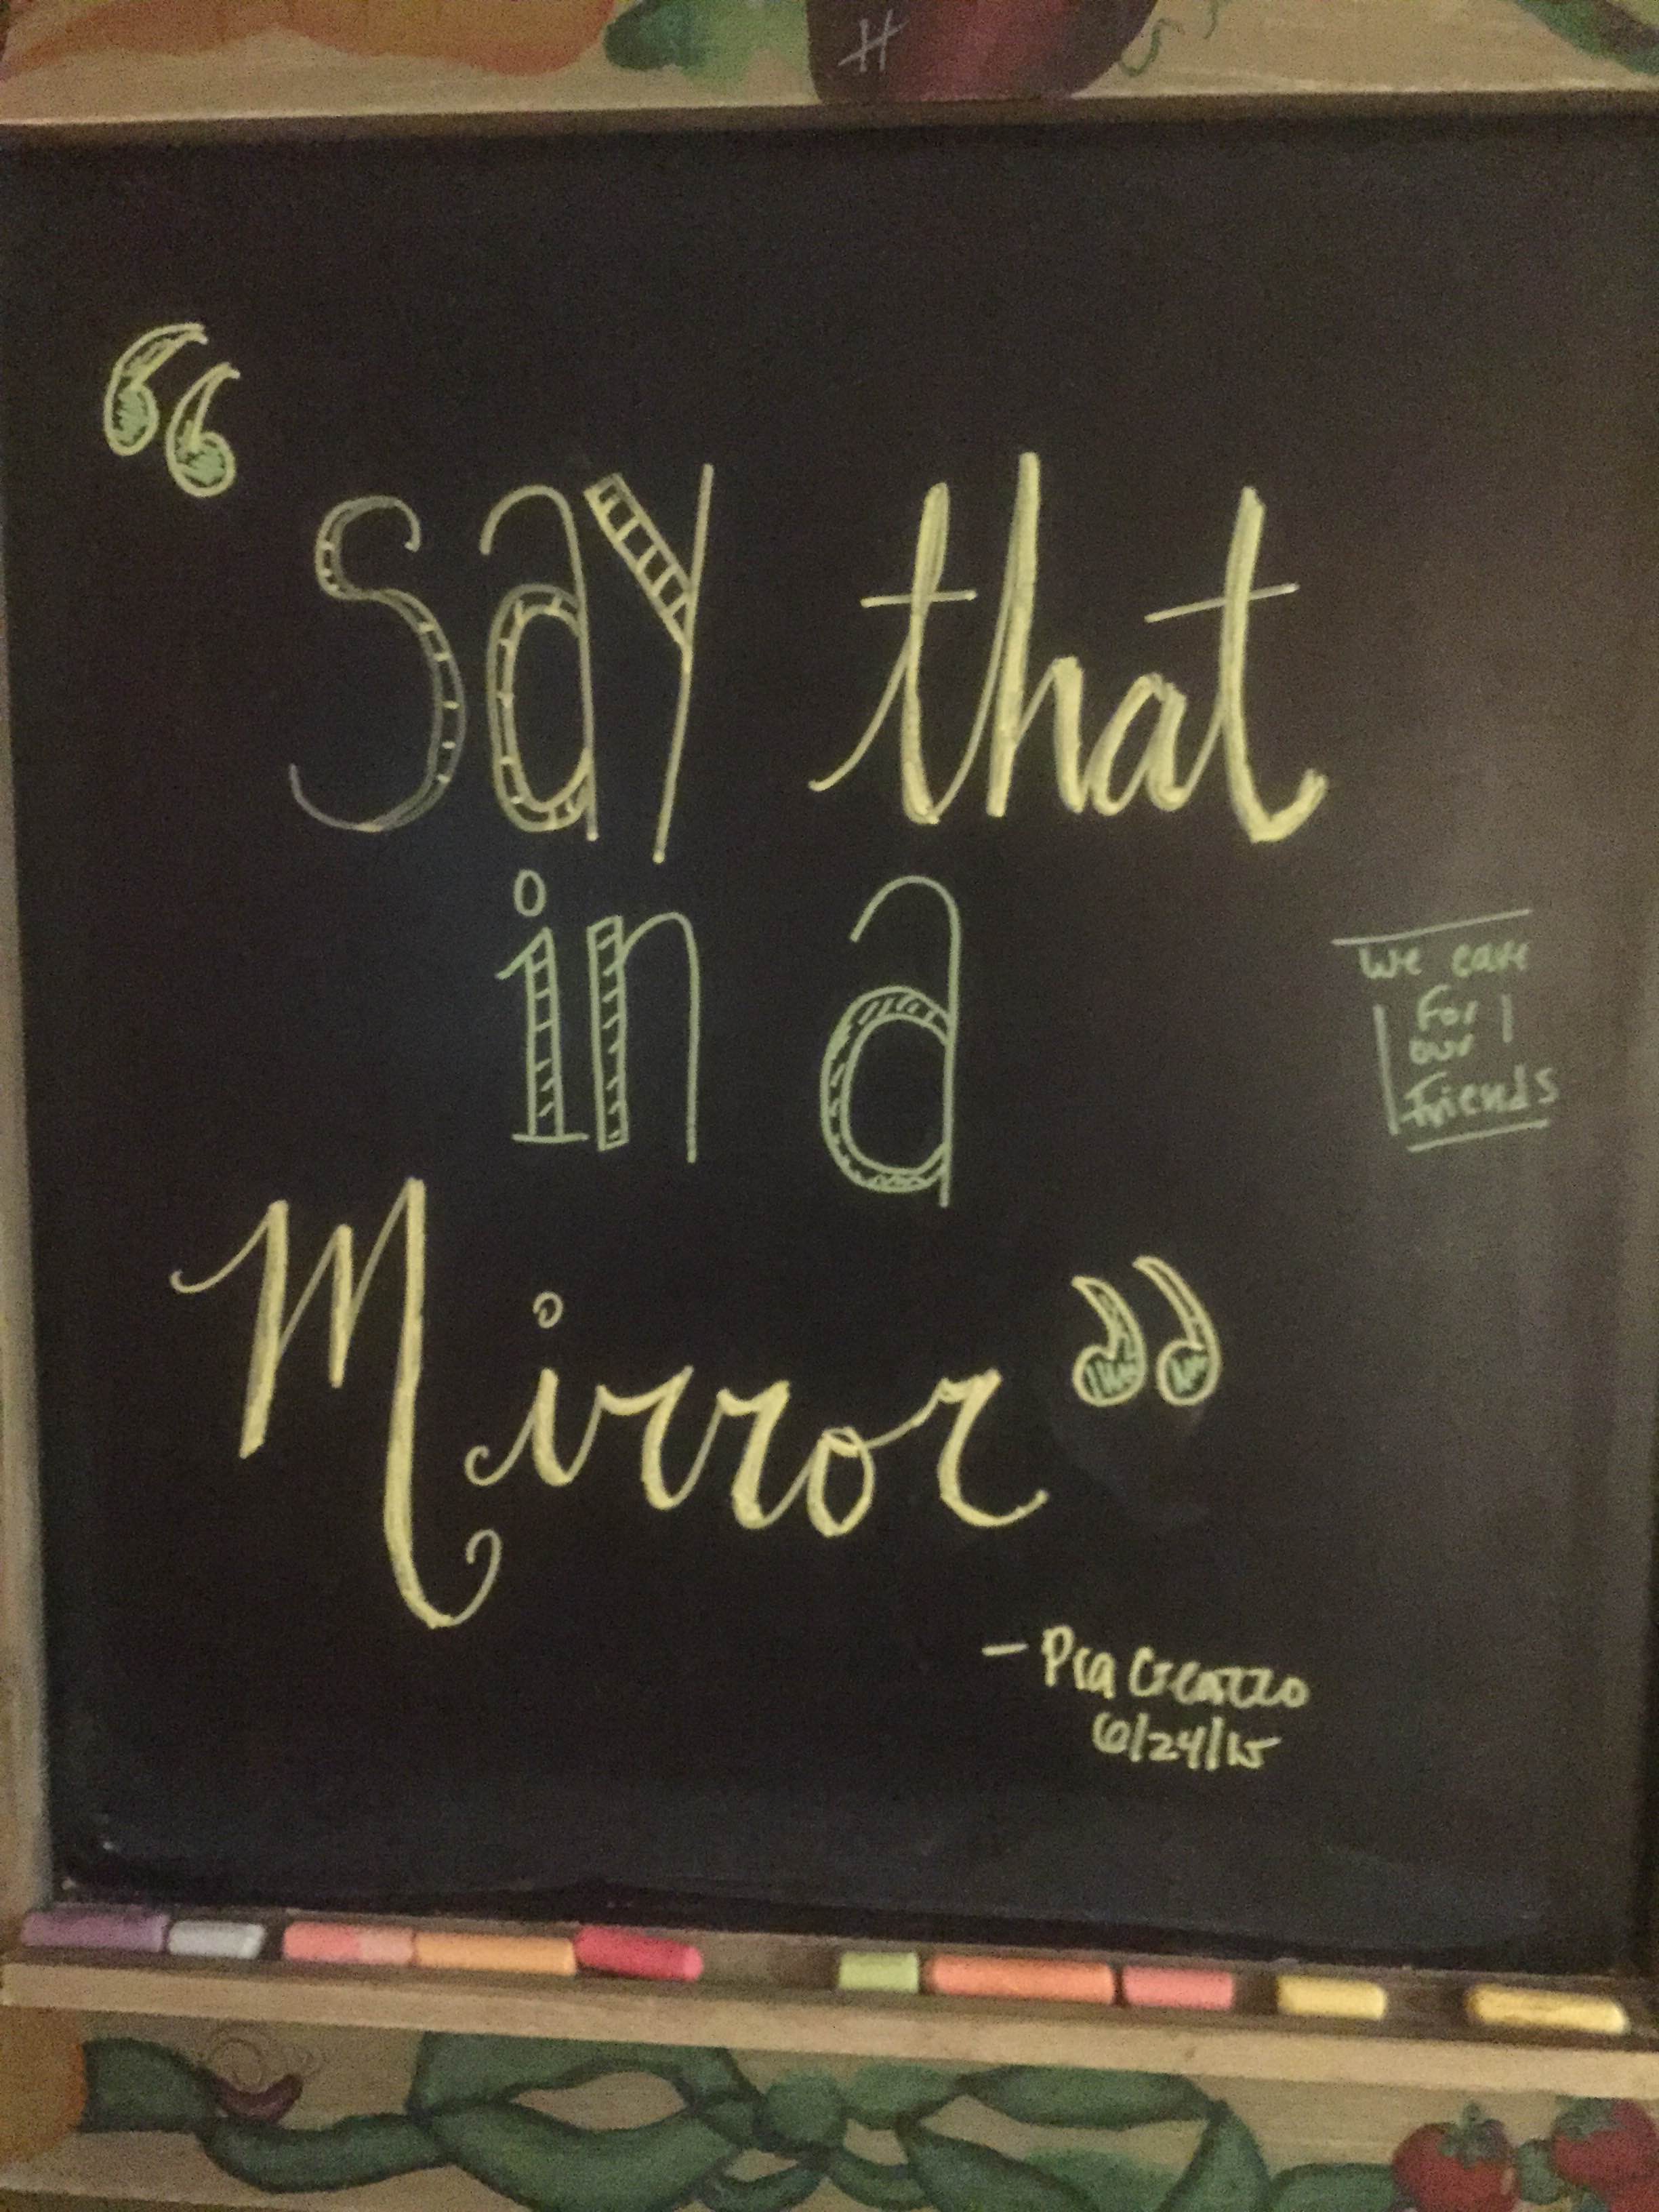 H
“Say that
in a
Mirror”
We care
For
our
Friends
— Pia
6/24/15